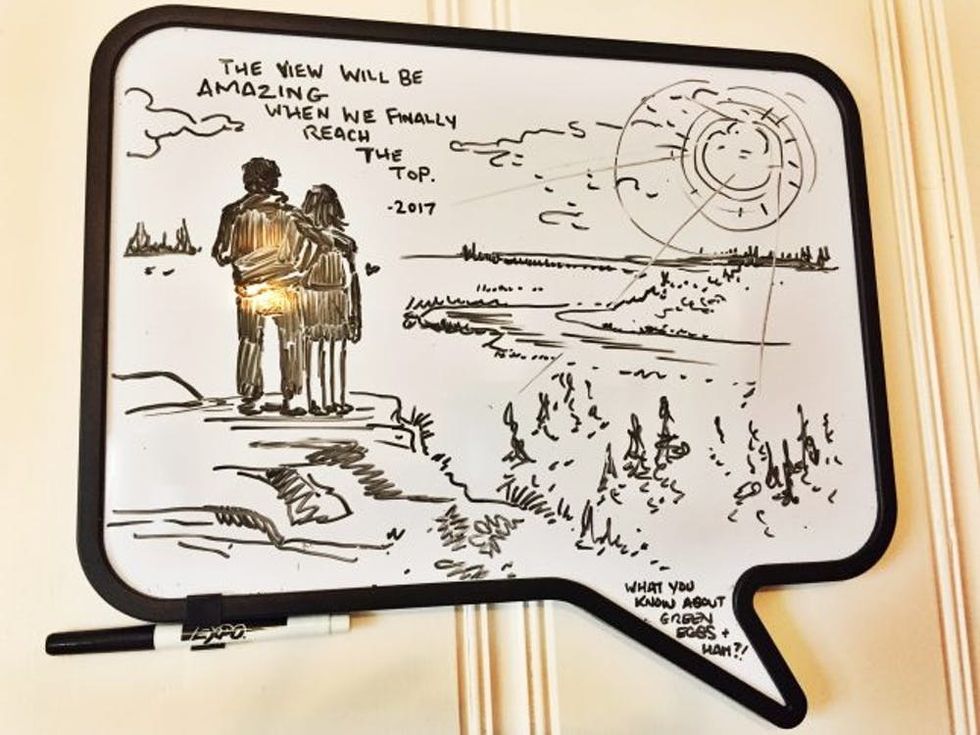 THE VIEW WILL BE
AMAZING
WHEN WE FINALLY
REACH
THE
TOP.
-2017
WHAT YOU
KNOW ABOUT
GREEN
EGGS +
HAM?!
EXPO